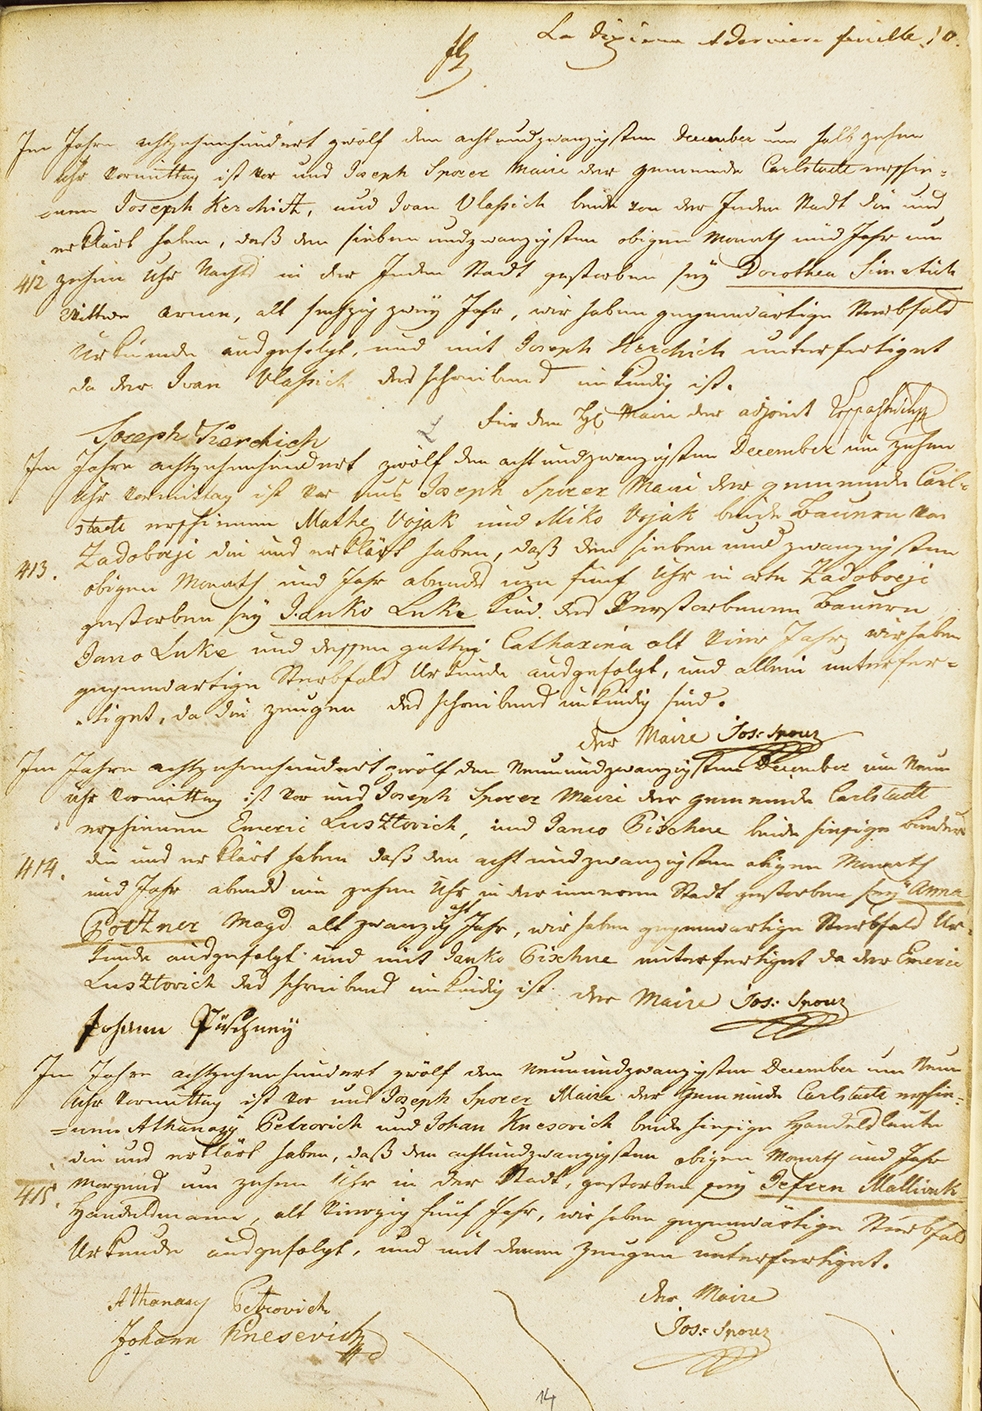 La dixieme et derniere feuille. 10.
Im Jahre achtzehnhundert zwölf den achtundzwanzigsten December um halb zehen
Uhr Vormittag ist vor uns Joseph Sporer Maire der gemeinde Carlstadt erschie-
=nen Joseph Kerchich, und Ivan Vlassich beide von der Stadt die uns
erklärt haben, daß den siebenundzwanzigsten obigen Monath und Jahr um
412 zehen Uhr Nachts in der Stadt gestorben sey Dorothea Simatich
Wittwe, alt sechzig zwey Jahr, wir haben gegenwärtige Sterbfalls
Urkunde ausgefolgt, und mit Joseph Kerchich unterfertiget
da der Ivan Vlassich des schreibens unkündig ist.
Für den Maire der adjoint
Joseph Kerchich
Im Jahre achtzehenhundert zwölf den achtundzwanzigsten December um zehen
Uhr Vormittag ist vor uns Joseph Sporer Maire der gemeinde Carl=
stadt erschienen Mathe Vojak und Miko Vojak beide Bauern von
Zadoborje die uns erklärt haben, daß den siebenundzwanzigsten
413. obigen Monath und Jahr abends um fünf Uhr in orte Zadoborje
gestorben sey Janko Luke Kind des Verstorbenen Bauern
Jano Luke und dessen gattin Catharina alt Vier Jahr, wir haben
gegenwärtige Sterbfalls Urkunde ausgefolgt, und allein unterfer=
=tiget, da die zeugen des schreibens unkündig sind.
der Maire Jos: Sporer
Im Jahre achtzehenhundert zwölf den Neunundzwanzigsten December um Neun
uhr Vormittag ist vor uns Joseph Sporer Maire der gemeinde Carlstadt
erschienen Emeric Lusztovich, und Janco Pischne beide hiesige
414. die uns erklärt haben daß den achtundzwanzigsten obigen Monath
und Jahr abends um zehen Uhr in der inneren Stadt gestorben sey Anna
Pottner Magd alt zwanzig acht Jahr, wir haben gegenwärtige Sterbfalls Ur=
kunde ausgefolgt und mit Janko Pischne unterfertiget da der Emeric
Lusztovich des schreibens unkündig ist. der Maire Jos: Sporer
Johann Pischney
Im Jahre achtzehenhundert zwölf den neunundzwanzigsten December um Neun
Uhr Vormittag ist vor uns Joseph Sporer Maire der Gemeinde Carlstadt erschie=
=nen Athanasy Petrovich und Johan Knesevich beide hiesige Handelsleute
die uns erklärt haben, daß den achtundzwanzigsten obigen Monath und Jahr
415. Morgens um zehen Uhr in der Stadt, gestorben sey Jefrem Mallivuk
Handelsmann, alt Vierzig fünf Jahr, wir haben gegenwärtige Sterbfalls
Urkunde ausgefolgt, und mit denen zeugen unterfertiget.
Athanasy Petrovich der Maire
Johann Knesevich Jos: Sporer
14